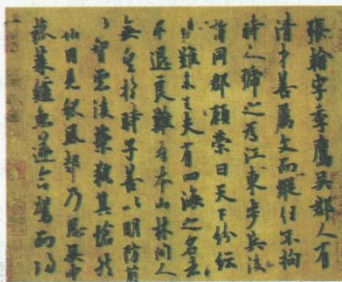 張翰字季鷹吳郡人有
清才善屬文而縱任不拘
時人號之為江東步兵後
謂同郡顧榮曰天下紛紜
禍難未已夫有四海之名者
求退良難吾本山林間人
無望於時子善以明防前
以智慮後榮執其愴然
翰因見秋風起乃思吳中
菰菜鱸魚遂命駕而歸